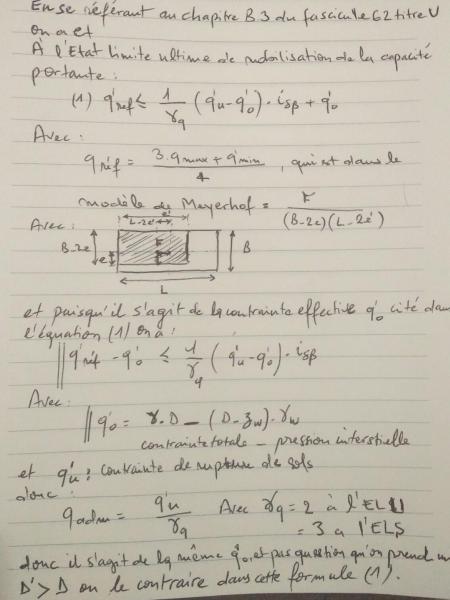 En se référant au chapitre B.3 du fascicule 62 titre V
on a et
À l'Etat limite ultime de mobilisation de la capacité
portante :
(1) q'réf ≤ 1/γq (q'u - q'o) . iδβ + q'o
Avec :
q'réf = (3.q'max + q'min)/4 , qui est dans le
modèle de Meyerhof = F/((B-2e)(L-2e'))
Avec :
L-2e' e'
B-2e e F B
L
et puisqu'il s'agit de la contrainte effective q'o cité dans
l'équation (1) on a :
|| q'réf - q'o ≤ 1/γq (q'u - q'o) . iδβ
Avec :
|| q'o = γ.D - (D-zw).γw
contrainte totale - pression interstielle
et q'u : contrainte de rupture de sols
donc :
qadm = q'u/γq Avec γq = 2 à l'ELU
= 3 a l'ELS
donc il s'agit de la même q'o, et pas question qu'on prend un
D' > D ou le contraire dans cette formule (1).